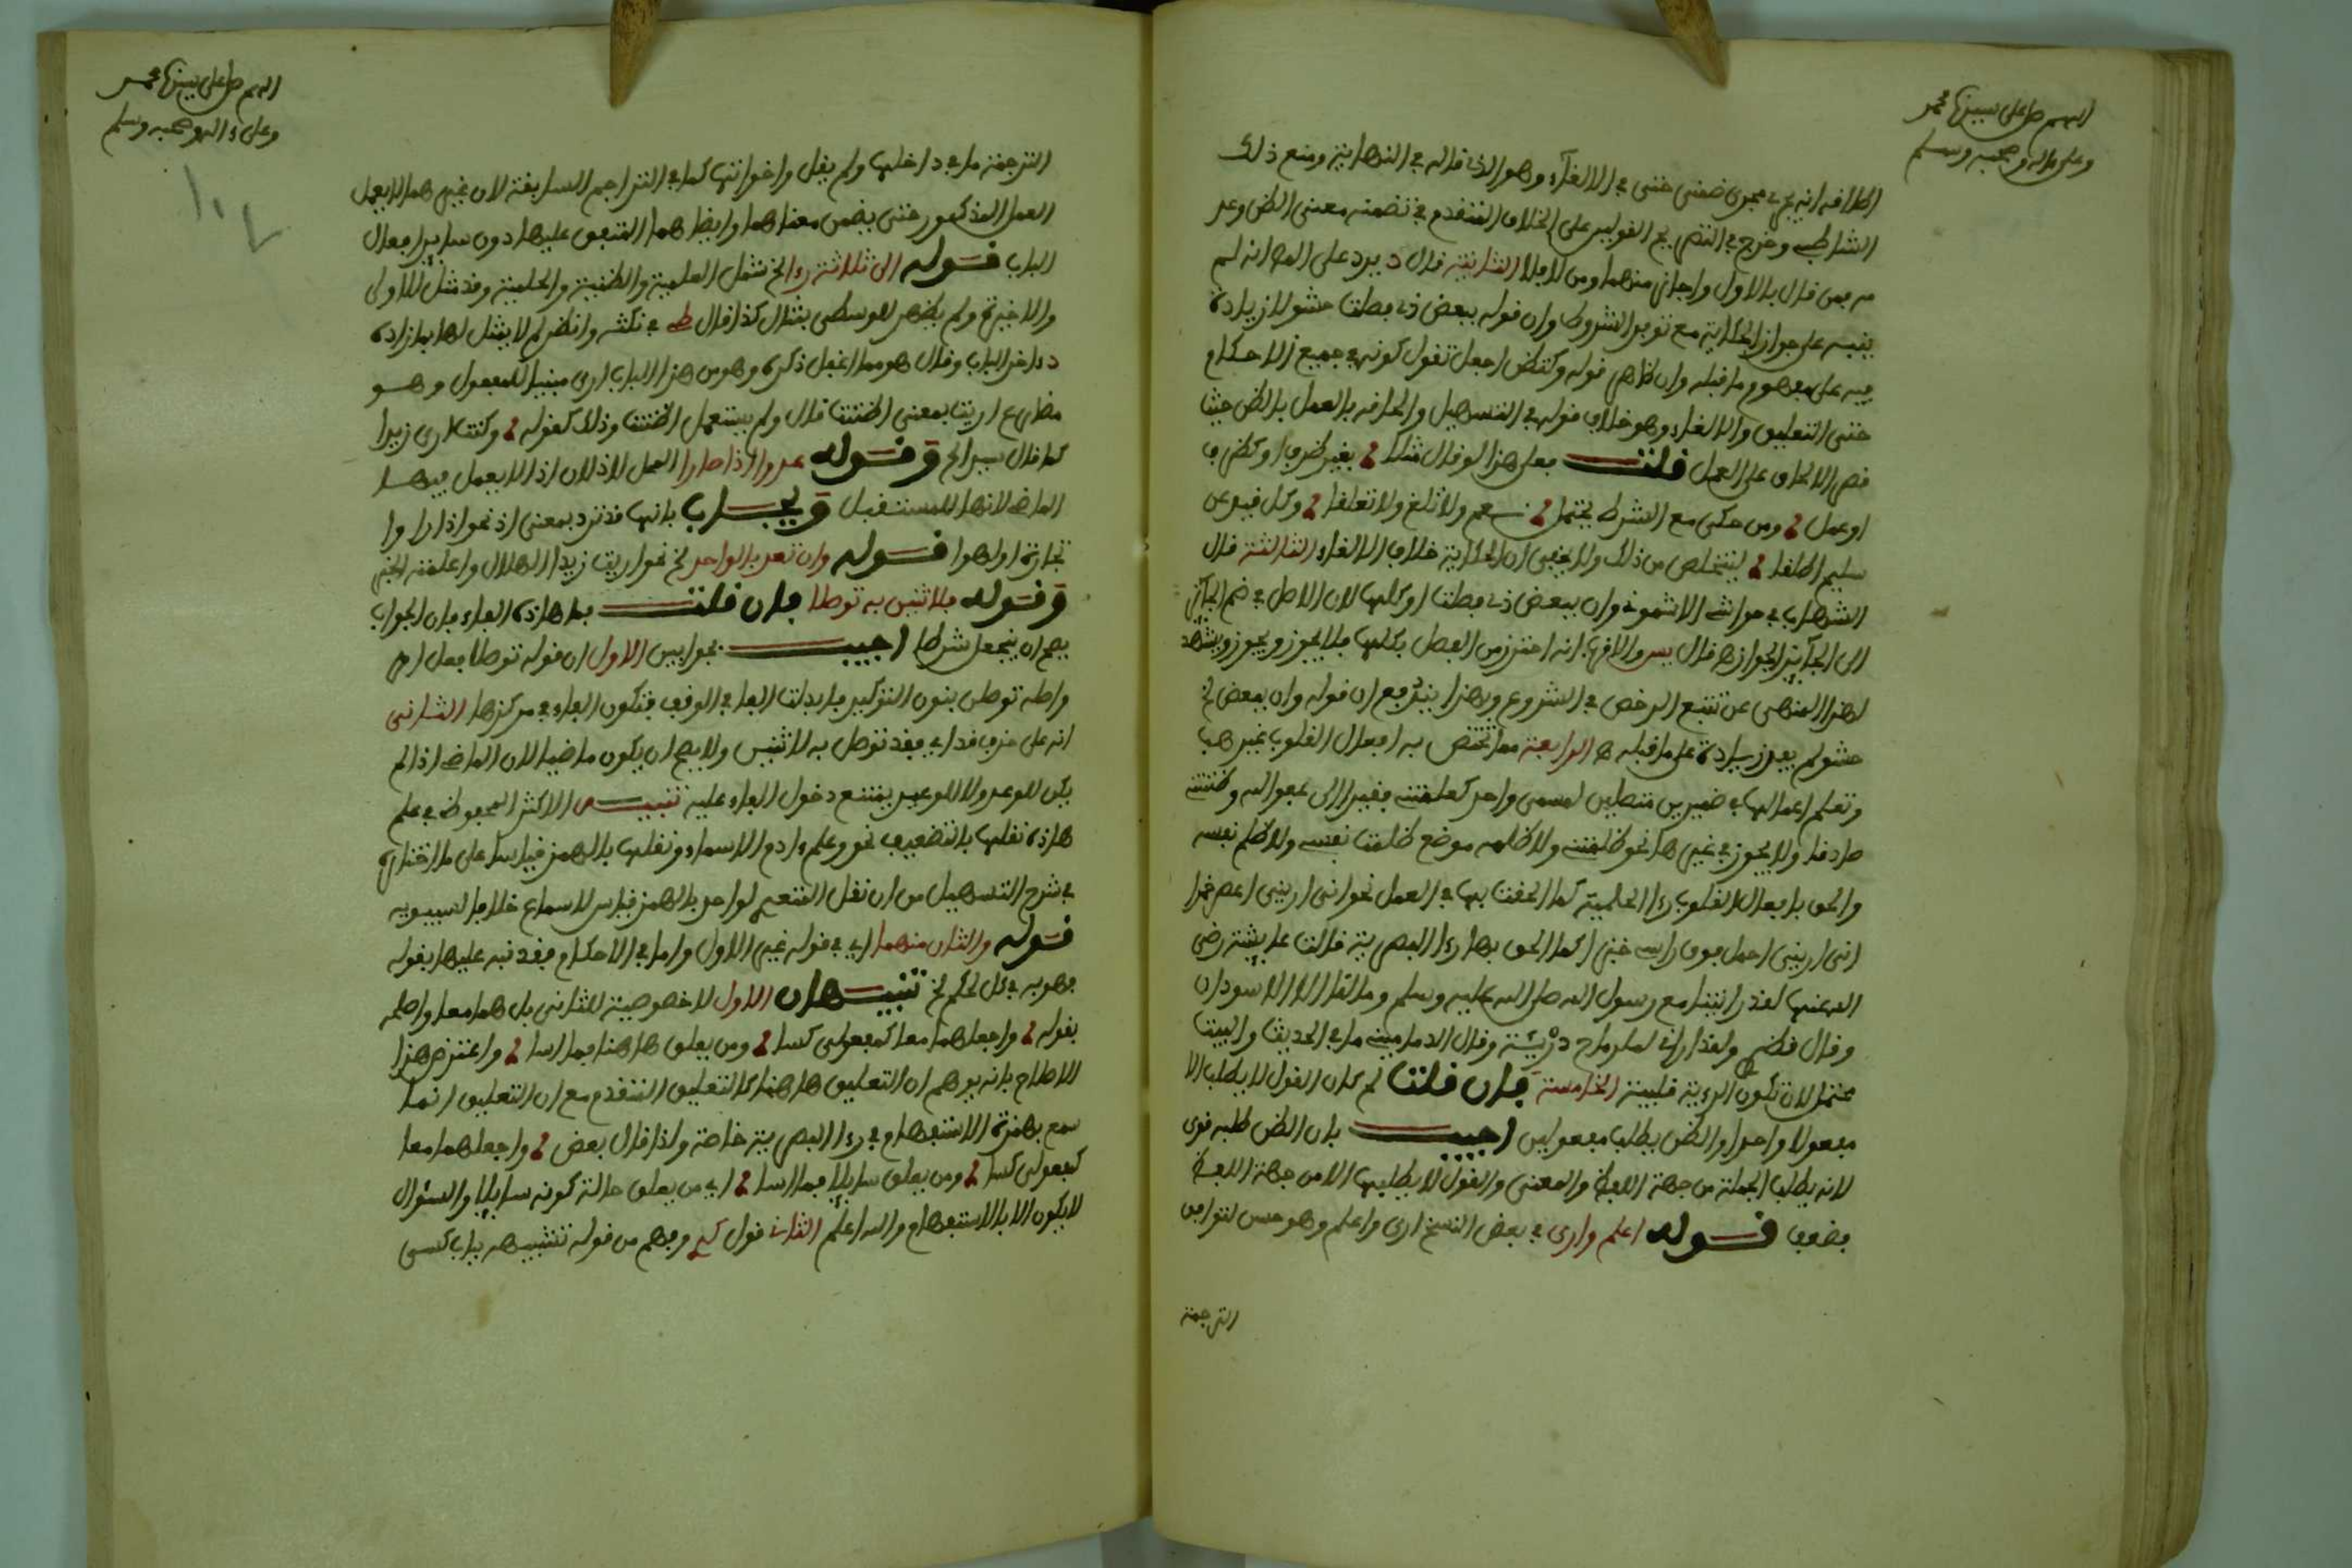 اللهم صل على سيدنا محمد
وعلى ءاله وصحبه وسلم
الشاطبي وخرج في التصريح القولين على الخلاف المتقدم في تضمنه معنى الظن وعد
مه فمن قال بالاول واجازه منهما ومن لا فلا الثانية قال د يرد على المص انه لم
ينبه على جواز الحكاية مع توفر الشروط وان قوله ببعض ذي فصلت حشو لا زيادة
فيه على مفهوم ما قبله وان ظاهر قوله وكتظن اجعل تقول كونه في جميع الاحكام
حتى التعليق والالغاء وهو خلاف قوله في التسهيل والحاقه بالعمل بالظن حيث
قصر الالحاق على العمل قلت فعلى هذا لو قال بغير ظرف او كظرف
او عمل ومن حكى مع الشرط يحتمل نعم ولا تلغ ولا تعلقا وكل فيه عن
سليم اطلقا ليتخلص من ذلك ولا يخفى ان الحكاية خلاف الالغاء الثالثة قال
الشهاب في حواشي الاشموني وان ببعض ذي فصلت او كلها لان الاصل في ضم الجائز
الى الجائز الجواز قال يس والاقرب انه احترز من الفصل بكلها فلا يجوز ويجوز ويشهد
لهذا المنهى عن تتبع الرخص في الشروع وبهذا يندفع ان قوله وان ببعض الخ
حشو لم يفد زيادة على ما قبله الرابعة مما تختص به افعال القلوب غير هب
وتعلم اعمالها في ضميرين متصلين لمسمى واحد كعلمتني فقيرا الى عفو الله وظننتني
صادقا ولا يجوز في غيرها نحو ظلمتني ولا ظلمه موضع ظلمت نفسي ولا ظلم نفسه
والحق بافعال القلوب رءا الحلمية كما الحقت بها في العمل نحو اني اريني اعصر خمرا
اني اريني احمل فوق راسي خبزا كما الحق بها رءا البصرية قالت عايشة رضي
الله عنها لقد رايتنا مع رسول الله صلى الله عليه وسلم وما لنا الا الاسودان
وقال قطري ولقد اراني للرماح دريئة وقال الدماميني ما في الحديث والبيت
محتمل لان تكون الرءية قلبية الخامسة فان قلت لم كان القول لا يطلب الا
مفعولا واحدا والظن يطلب مفعولين اجيب بان الظن طلبه قوى
لانه يطلب الجملة من جهة اللفظ والمعنى والقول لا يطلبها الا من جهة اللفظ
فضعف قوله اعلم وارى في بعض النسخ ارى واعلم وهو حسن لتوافق
الترجمة
اللهم صل على سيدنا محمد
وعلى ءاله وصحبه وسلم
الترجمة ما في داخلها ولم يقل واخواتها كما في التراجم السابقة لان غيرهما لا يعمل
العمل المذكور حتى يضمن معناهما وايضا هما المتفق عليهما دون ساير افعال
الباب قوله الى ثلاثة رءا الخ شمل العلمية والظنية والحلمية وقد مثل للاولى
والاخيرة ولم يظهر للوسطى بمثال كذا قال في نكته وانظر لم لا يمثل لها بما زاده
داخر الباب وقال هو مما اغفل ذكره وهو من هذا الباب ارى مبنيا للمفعول وهو
مضارع اريت بمعنى اظننت قال ولم يستعمل اظننت وذلك كقوله وكنت ارى زيدا
كما قال سيدا الخ وقوله عدوا اذا صارا العمل لا ذلان اذ لا يعمل فيها
الماضي لانها للمستقبل ويجاب بانها قد ترد بمعنى اذ نحو اذا راوا
تجارة او لهوا قوله وان تعديا لواحد الخ نحو اريت زيدا الهلال واعلمته الخبر
وقوله فلاثنين به توصلا فان قلت بما هاذه الفاء فان الجواب
يصح ان يجعل شرطا اجيب بجوابين الاول ان قوله توصلا فعل امر
واصله توصلن بنون التوكيد فابدلت الفا في الوقف فتكون الفاء في مركزها الثاني
انه على حذف قد اي فقد توصل به لاثنين ولا يصح ان يكون ماضيا لان الماضي اذا لم
يكن للوعد ولا للوعيد يمتنع دخول الفاء عليه تنبيه الاكثر المحفوظ في علم
هاذه نقلها بالتضعيف نحو وعلم ءادم الاسماء ونقلها بالهمز قياسا على ما اختاره
في شرح التسهيل من ان نقل المتعدي لواحد بالهمز قياس لا سماع خلافا لسيبويه
قوله والثان منهما اي في قوله غير الاول واما في الاحكام فقد نبه عليها بقوله
فهو به في كل حكم الخ تنبيهان الاول لا خصوصية للثاني بل هما معا واصلحه
بقوله واجعلهما معا كمفعولى كسا ومن يعلق هاهنا فما اسا واعترض هذا
الاصلاح بانه يوهم ان التعليق هاهنا كالتعليق المتقدم مع ان التعليق انما
سمع بهمزة الاستفهام في رءا البصرية خاصة ولذا قال بعض واجعلهما معا
كمفعولى كسا ومن يعلق سايلا فما اسا اي من يعلق حالة كونه سايلا والسؤال
لا يكون الا بالاستفهام والله اعلم الثاني قول وفهم من قوله تشبيهه بباب كسى